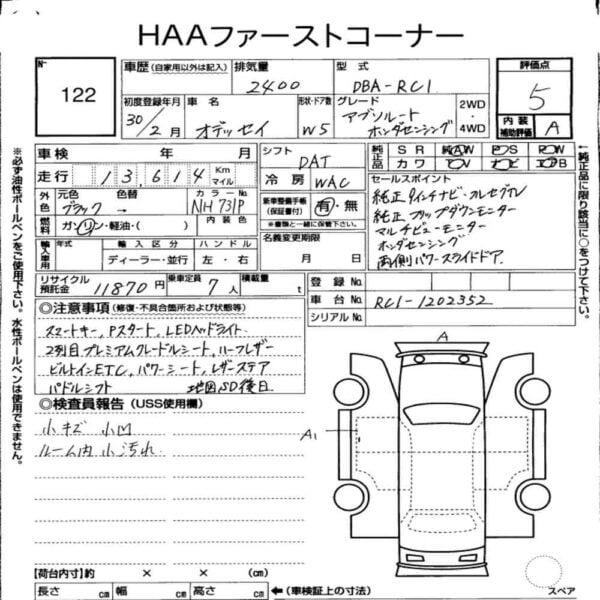 HAAファーストコーナー
No 122
車歴 (自家用以外は記入) 排気量 2400 型式 DBA-RC1 評価点 5
初度登録年月 30/2月 車名 オデッセイ 形状・ドア数 W5 グレード アブソルート ホンダセンシング 2WD・4WD 内装補助評価 A
※必ず油性ボールペンをご使用下さい。水性ボールペンは使用できません。
車検 年 月
走行 13,614 Km マイル
シフト DAT
冷房 WAC
純正品 SR AW PS PW
カワ TV ナビ エアB
↑純正品に限り該当に○をつけて下さい。
外色 元色 ブラック 色替 → カラーNo NH731P 内装色
燃料 ガソリン・軽油・( )
新車整備手帳 (保証書付) 有・無
※書類と一緒に保管下さい。
セールスポイント
純正9インチナビ・フルセグTV
純正フリップダウンモニター
マルチビューモニター
ホンダセンシング
両側パワースライドドア
輸入車用 年式 輸入区分 ディーラー・並行 ハンドル 左・右
名義変更期限 月 日
リサイクル預託金 11870円 乗車定員 7人 積載量 t
登録No
車台No RC1-1202352
シリアルNo
◎注意事項 (修復・不具合箇所および状態等)
スマートキー、Pスタート、LEDヘッドライト
2列目プレミアムクレードルシート、ハーフレザー
ビルトインETC、パワーシート、レザーステア
パドルシフト 地図SD後日
◎検査員報告 (USS使用欄)
小キズ 小凹
ルーム内小汚れ
A
A1
【荷台内寸】約 × × (cm)
長さ cm 幅 cm 高さ cm ←(車検証上の寸法)
スペア